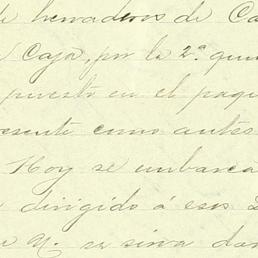 de herraderos de Ca
Caja, por la 2ª quin
puesto en el paqu
resente como antes
Hoy se embarca
dirigido á esos
N. se sirva dar